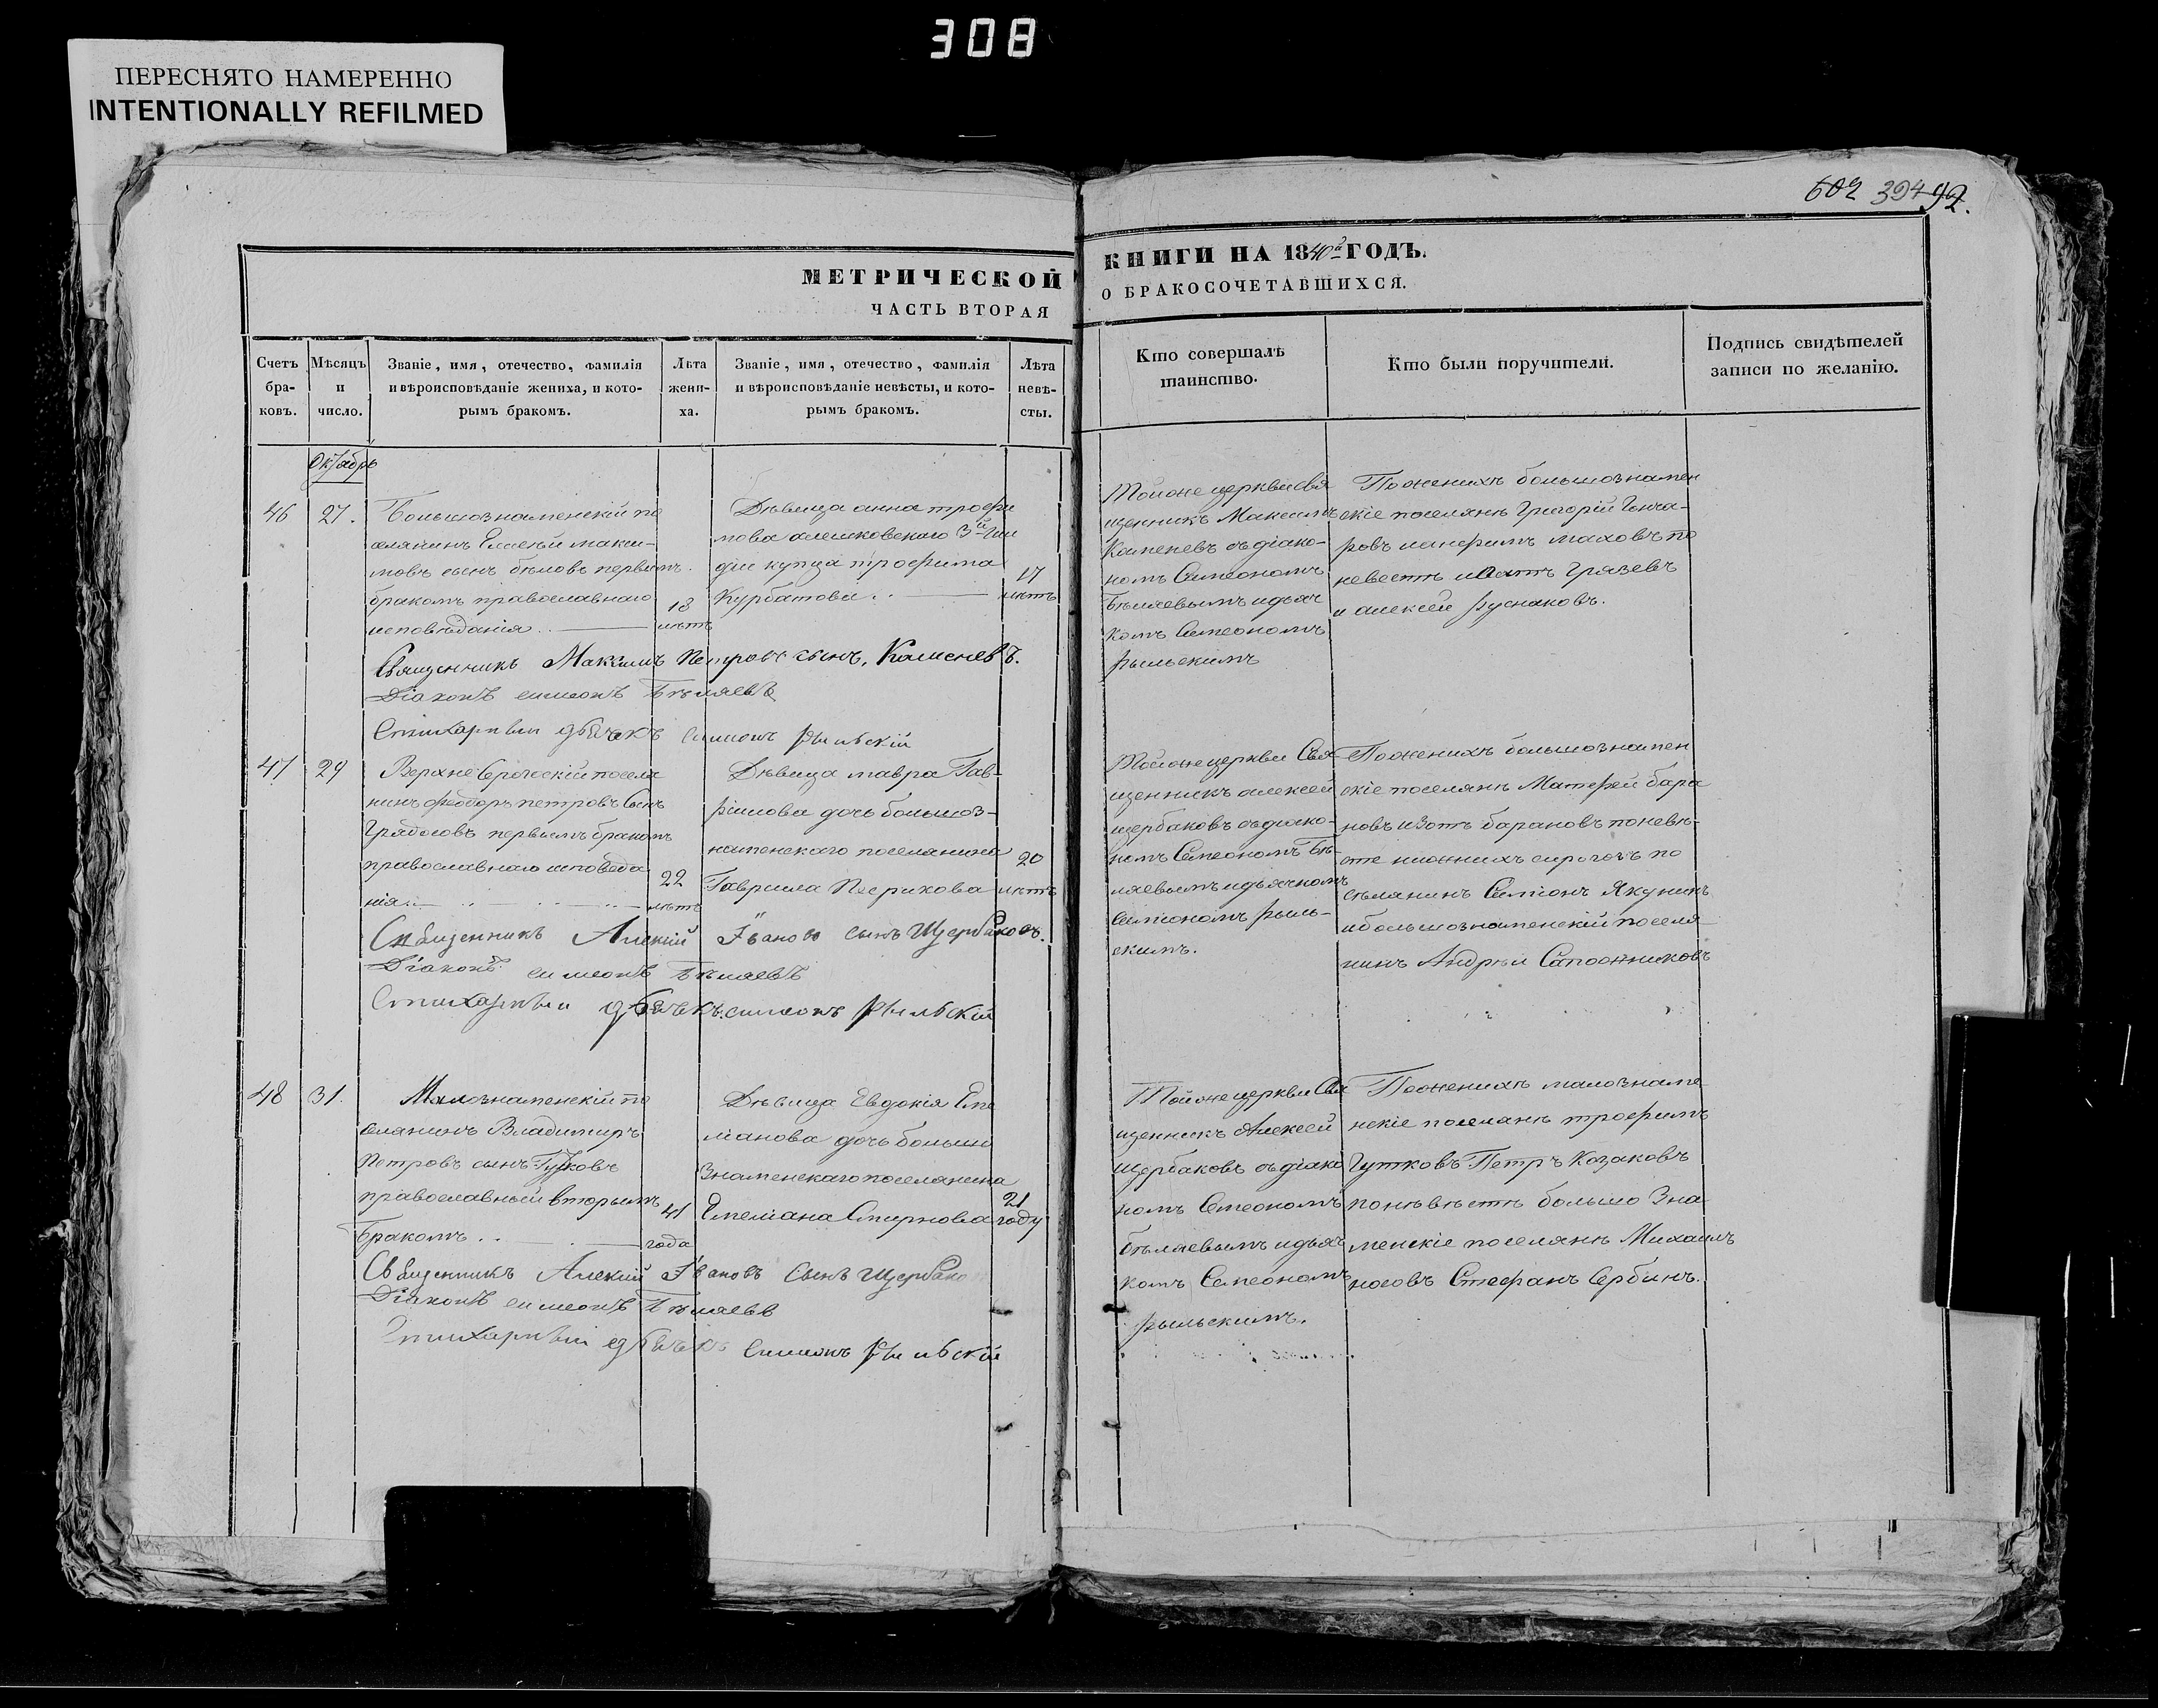 308
ПЕРЕСНЯТО НАМЕРЕННО
INTENTIONALLY REFILMED
602 394 92.
МЕТРИЧЕСКОЙ
ЧАСТЬ ВТОРАЯ
КНИГИ НА 1840й ГОДЪ.
О БРАКОСОЧЕТАВШИХСЯ.
Счетъ
бра-
ковъ.
Мѣсяцъ
и
число.
Званіе, имя, отечество, фамилія
и вѣроисповѣданіе жениха, и кото-
рымъ бракомъ.
Лѣта
жени-
ха.
Званіе, имя, отечество, фамилія
и вѣроисповѣданіе невѣсты, и кото-
рымъ бракомъ.
Лѣта
невѣ-
сты.
Кто совершалъ
таинство.
Кто были поручители.
Подпись свидѣтелей
записи по желанію.
Октябрь
46
27.
Большознаменскій по
селянинъ макси-
мовъ сынъ бѣловъ первымъ
бракомъ православнаго
исповѣданія
18
лѣтъ
Дѣвица анна трофи
мова алешковскаго 3й гил
діи купца трофима
Курбатова
17
лѣтъ
Тойоже церкви свя
щенникъ Максимъ
Каменевъ съ діако-
номъ Симеономъ
Бѣляевымъ и дьяч
комъ Симеономъ
рыльскимъ
По женихѣ большознамен
скіе поселянѣ Григорій Гонча-
ровъ маховъ по
невестѣ Грязевъ
и алексѣй русаковъ.
Священникъ Максимъ Петровъ сынъ, Каменевъ.
Діаконъ симеонъ Бѣляевъ
Стихарный дьячекъ симеонъ рыльскій
47
29
Верхне Серогоскій поселя
нинъ феодоръ петровъ Сынъ
первымъ бракомъ
православнаго исповѣда
нія
22
лѣтъ
Дѣвица мавра Гав-
рилова дочь большоз-
наменскаго поселянина
Гавриила
20
лѣтъ
Тойоже церкви Свя
щенникъ алексей
щербаковъ съ діако-
номъ Симеономъ Бѣ-
ляевымъ и дьячкомъ
Симеономъ рыль-
скимъ.
По женихѣ большознамен
скіе поселянѣ Матфей бара
новъ изотъ барановъ по невѣ-
сте нижнихъ сирогозъ по
селянинъ Симіонъ Якунинъ
и большознаменскій поселя
нинъ Андрѣй Сапожниковъ
Священникъ Алексій Іванов сынъ Щербаковъ.
Діаконъ симеонъ Бѣляевъ
Стихарный дьячекъ симеонъ рыльскій
48
31.
Малознаменскій по
селянинъ Владимиръ
Петровъ сынъ Гутковъ
православный вторымъ
Бракомъ
41
года
Дѣвица Евдокія Еме
ліанова дочь большо
Знаменскаго поселянина
Емеліана Смирнова
21
году
Тойоже церкви Свя
щенникъ Алексей
щербаковъ съ діако
номъ Симеономъ
бѣляевымъ и дьяч
комъ Симеономъ
рыльскимъ.
По женихѣ малознаме-
нскіе поселянѣ трофимъ
Гутковъ Петръ Козаковъ
по невѣстѣ большо Зна-
менскіе поселянѣ Михаилъ
носовъ Стефанъ Сербинъ.
Священникъ Алексій Івановъ Сынъ Щербаков
Діаконъ симеонъ Бѣляевъ
Стихарный дьячекъ Симеонъ рыльскій